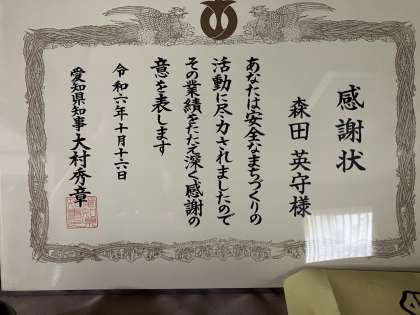 感謝状
森田英守様
あなたは安全なまちづくりの
活動に尽力されましたので
その業績をたたえ深く感謝の
意を表します
令和六年十月十六日
愛知県知事大村秀章